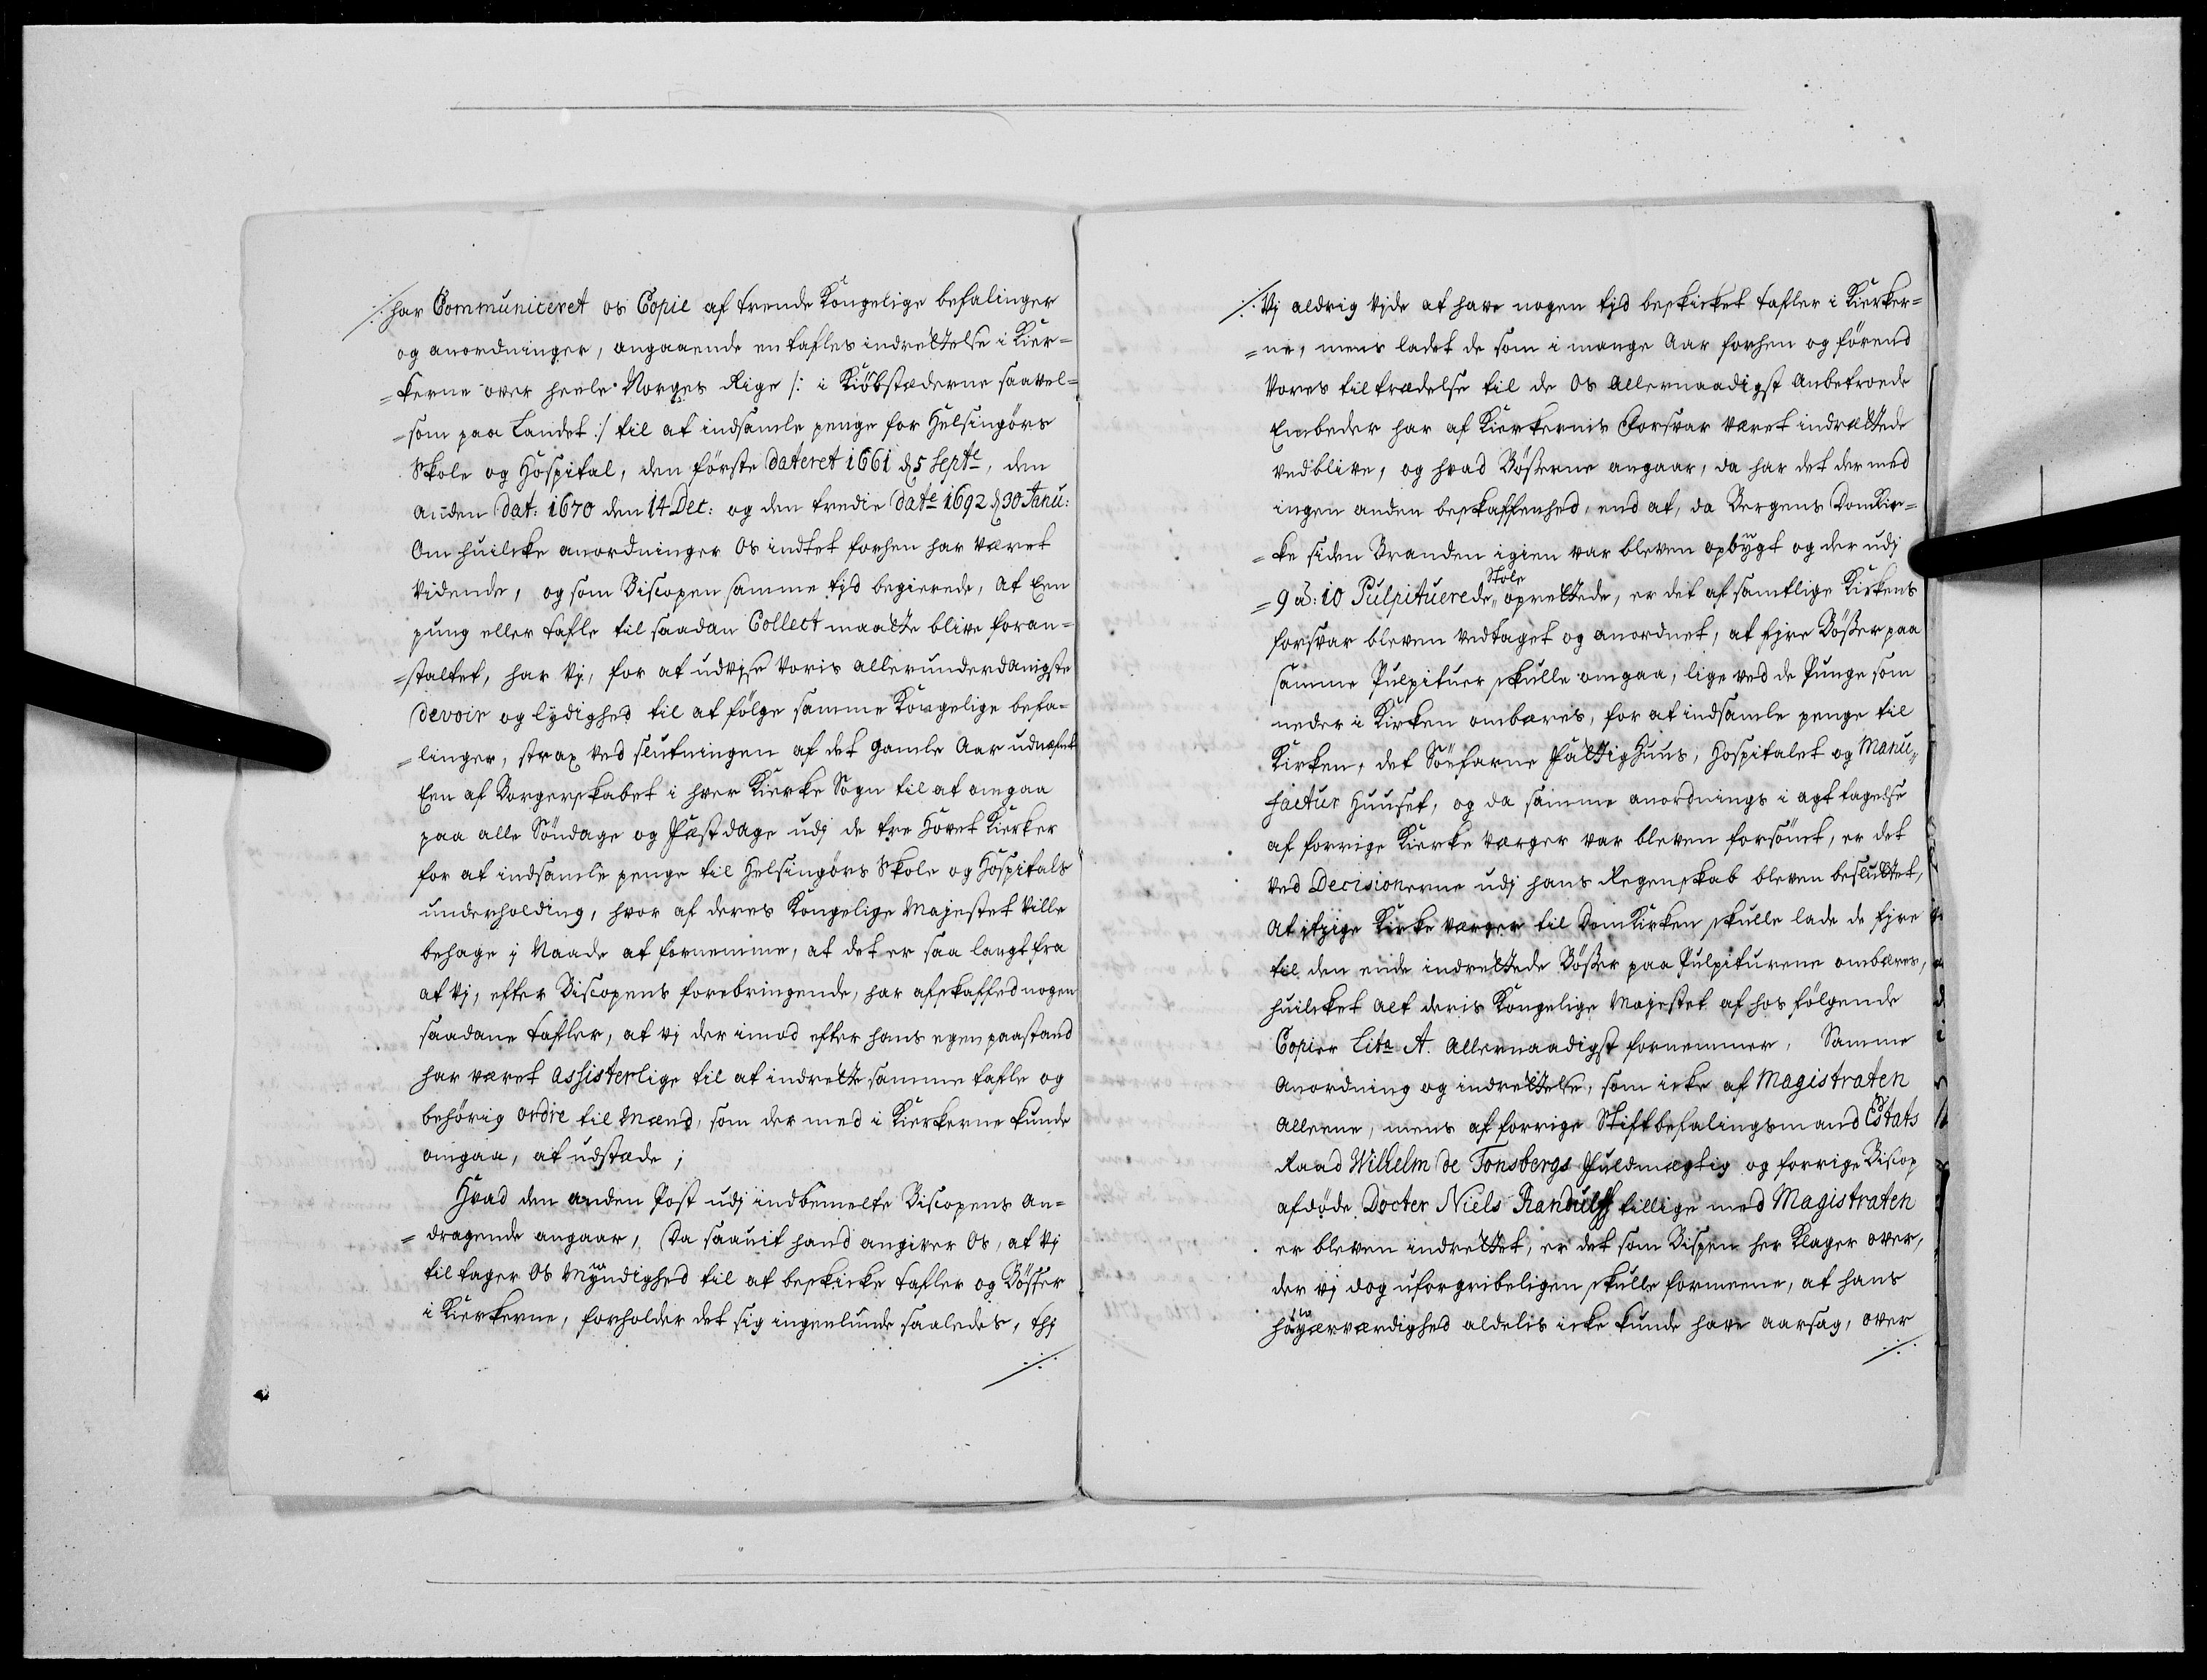 ./. har Communiceret os Copie af trende Kongelige befalinger
og anordninger, angaaende en tafles indrettelse i Kier=
=kerne over heele Norges Rige /: i Kiöbstæderne saavel=
=som paa Landet :/ til at indsamle penge for Helsingörs
Skole og Hospital, den förste dateret 1661 d 5 Septe, den
anden dat: 1670 den 14 Dec: og den tredie date 1692 d 30 Janu:
Om huilcke anordninger Os indtet forhen har været
vidende, og som Biscopen samme tjd begierede, at Een
pung eller tafle til saadan Collect maatte blive foran=
=staltet, har vj, for at udvise voris allerunderdanigste
devoir og lydighed til at fölge samme Kongelige befa=
=linger, strax ved slutningen af det gamle Aar udnæfnt
Een af Borgerskabet i hver Kierke Sogn til at omgaa
paa alle Söndage og Fæstdage udj de tre Hovet Kierker
for at indsamle penge til Helsingörs Skole og Hospitals
underholding, hvor af deres Kongelige Majestet ville
behage j Naade at fornemme, at det er saa langt fra
at vj, efter Biscopens forebringende, har afskaffed nogen
saadane tafler, at vj der imod efter hans egen paastand
har været assisterlige til at indrette samme tafle og
behörig ordre til Mænd, som der med i Kierkerne kunde
omgaa, at udstæde;
Hvad den anden Post udj indbemelte Biscopens an=
=dragende angaar, Da saavit hand angiver Os, at vj
til tager Os Myndighed til at beskicke tafler og Bösser
i Kierkerne, forholder det sig ingenlunde saaledes, thj
./.
./. Vj aldrig vjde at have nogen tjd beskicket tafler i Kierker=
=ne, mens ladet de som i mange Aar forhen og förend
vores tiltrædelse til de Os allernaadigst Anbetroede
Embeder har af Kierkernis Forsvar været indrettede
vedblive, og hvad Bösserne angaar, da har det dermed
ingen anden beskaffenhed, end at, da Bergens Domkir=
=ke siden Branden igien var bleven opbygt og der udj
=9 à: 10 Pulpituerede Stole oprettede, er det af samtlige Kirkens
forsvar bleven vedtaget og anordnet, at fjre Bösser paa
samme Pulpituer skulle omgaa, lige ved de Punge som
neder i Kirken ombæres, for at indsamle penge til
Kirken, det Söefarne Fattighuus, Hospitalet og Manu,,
factur Huuset, og da samme anordnings i agt tagelse
af forrige Kierke værger var bleven forsömt, er det
ved Decisionerne udj hans Regenskab bleven besluttet,
At itzige Kirke værger til DomKirken skulle lade de fjre
til den ende indrettede Bösser paa Pulpiturene ombæres,
huilcket alt deris Kongelige Majestet af hos fölgende
Copier Litr A. Allernaadigst fornemmer, Samme
Anordning og indrettelse, som icke af Magistraten
alleene, mens af forrige Stiftbefalingsmand Estats
Raad Wilhelm de Tonsbergs Fuldmægtig og forrige Biscop
afdøde Docter Niels Randulff tillige med Magistraten
er bleven indrettet, er det som Bispen her Klager over,
der vj dog uforgribeligen skulle formeene, at hans
höyærværdighed aldelis icke kunde have aarsag, over
./.